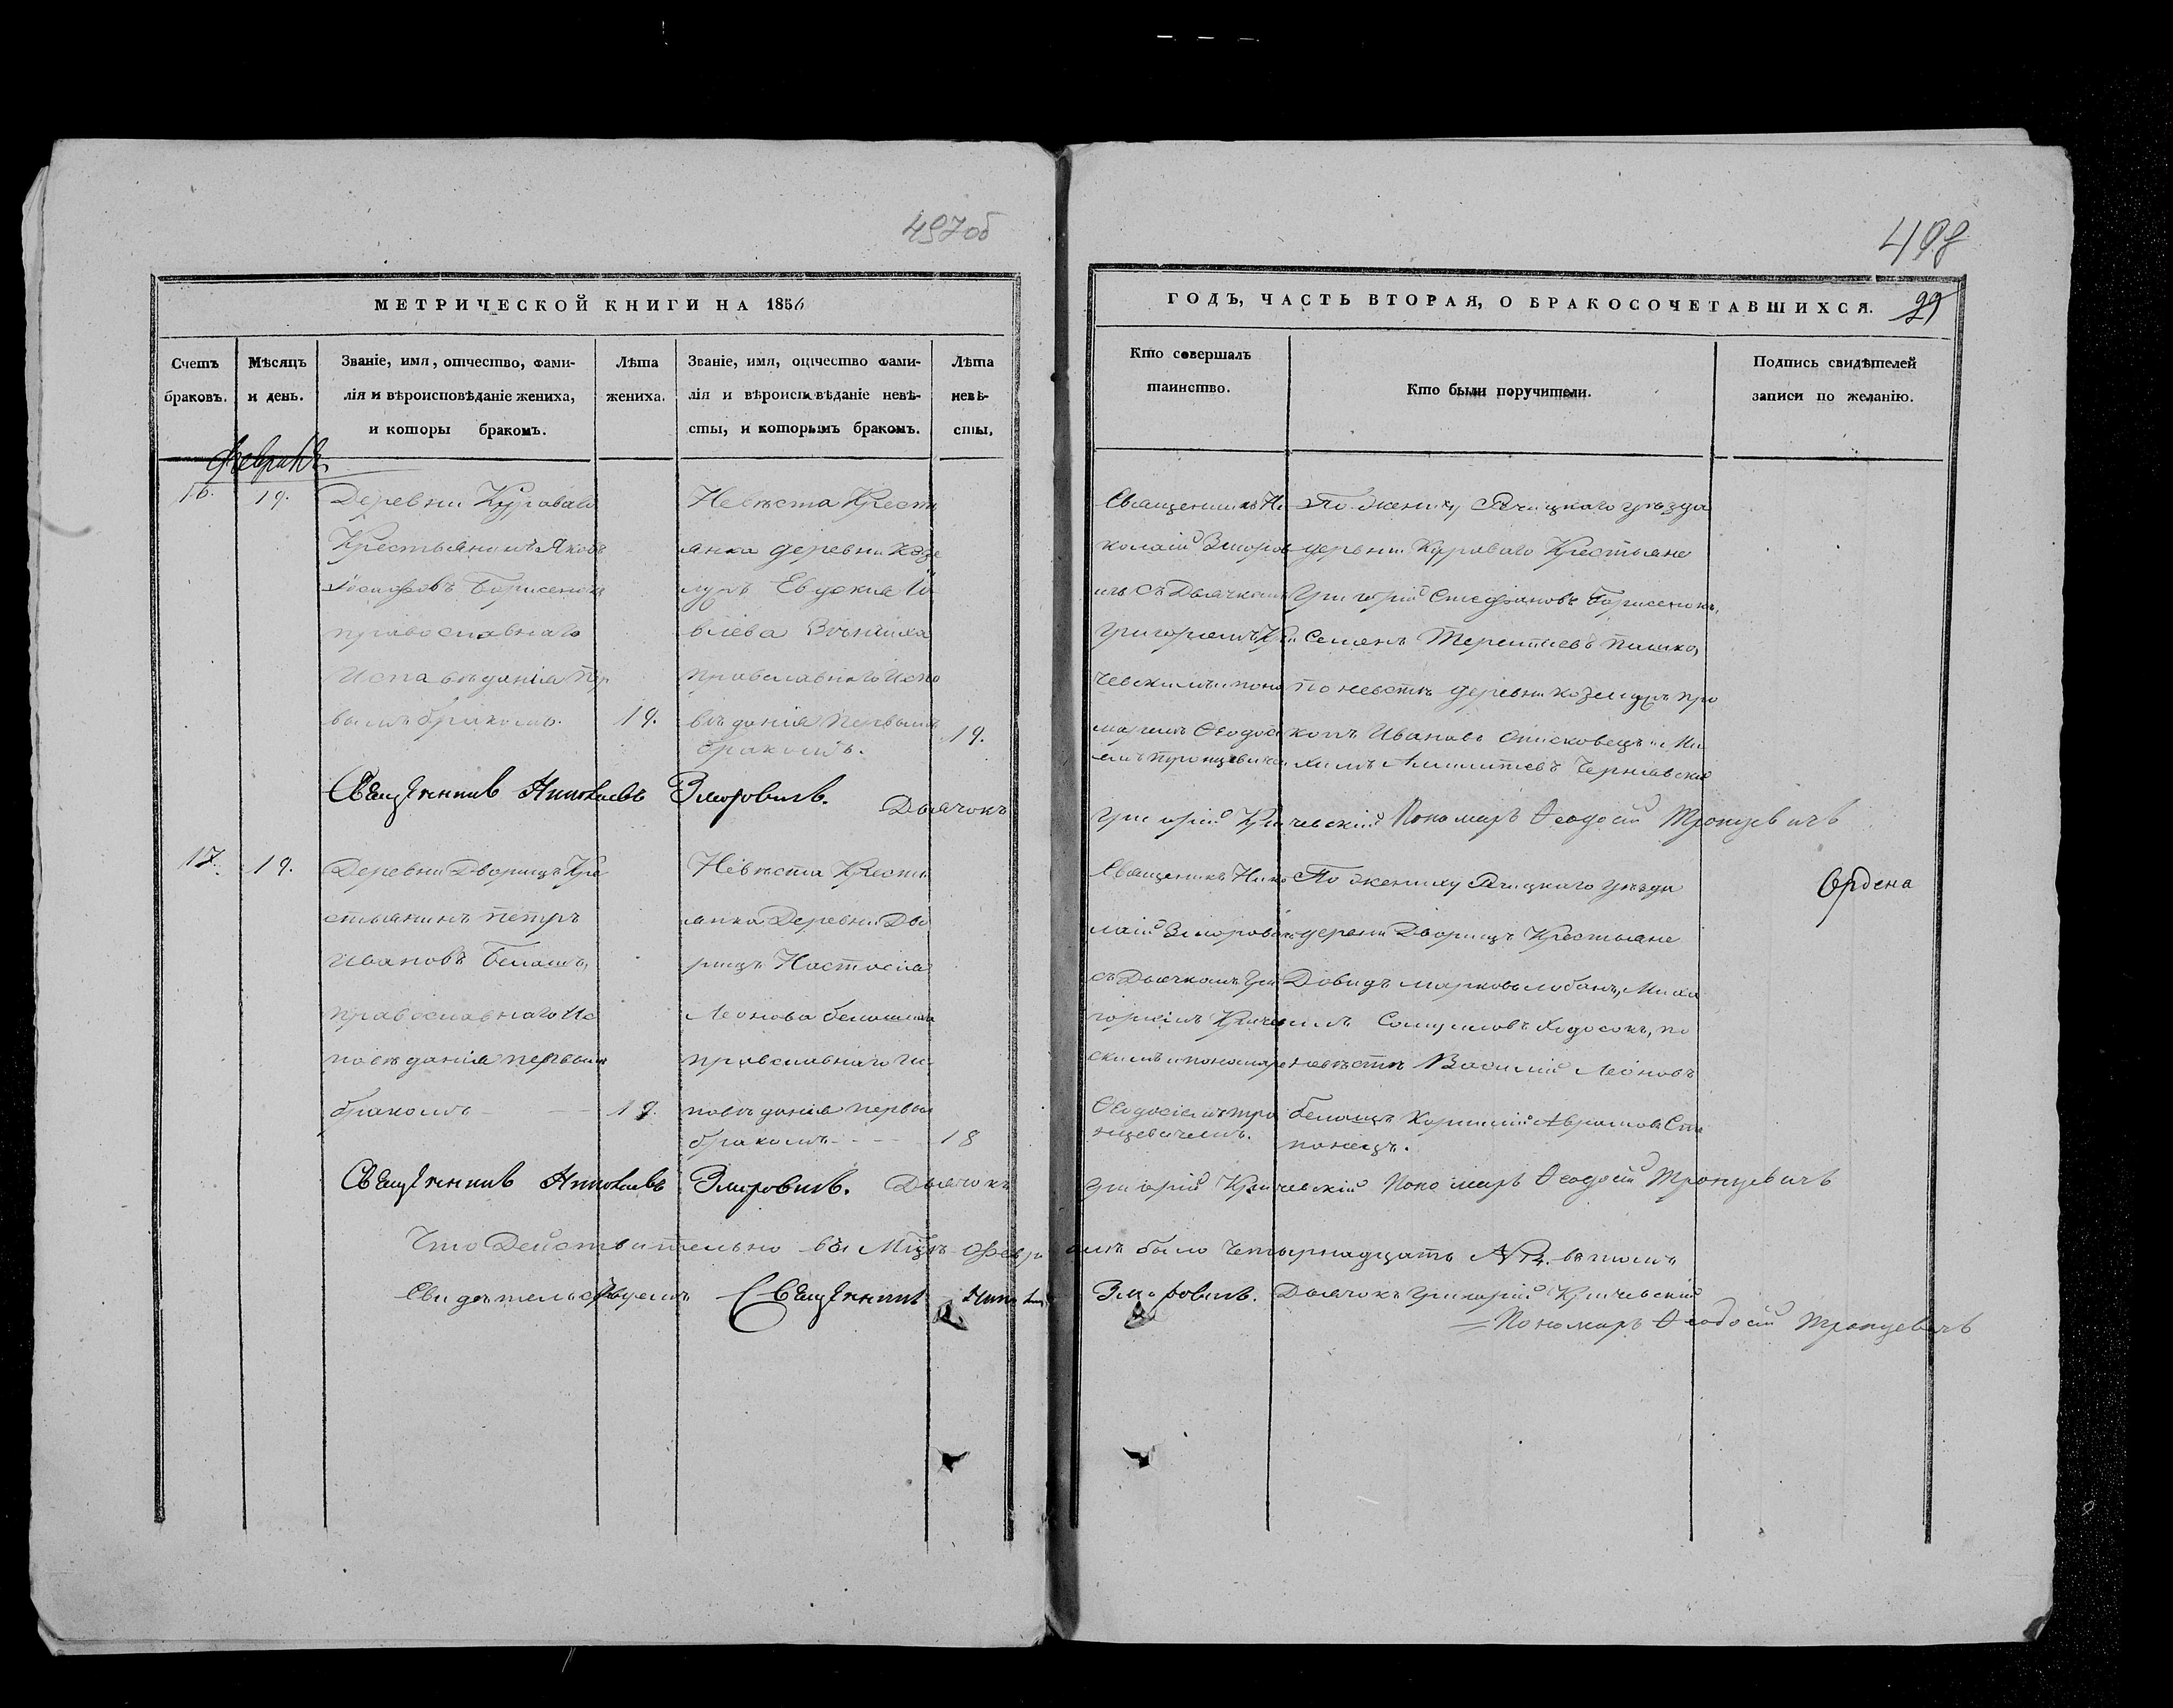 497об
498
МЕТРИЧЕСКОЙ КНИГИ НА 1856
ГОДЪ, ЧАСТЬ ВТОРАЯ, О БРАКОСОЧЕТАВШИХСЯ.
99
Счетъ
браковъ.
Мѣсяцъ
и день.
Званіе, имя, отчество, фами-
лія и вѣроисповѣданіе жениха,
и которы бракомъ.
Лѣта
жениха.
Званіе, имя, отчество фами-
лія и вѣроисповѣданіе невѣ-
сты, и которымъ бракомъ.
Лѣта
невѣ-
сты,
Кто совершалъ
таинство.
Кто были поручители.
Подпись свидѣтелей
записи по желанію.
Февраль
16.
19.
Деревни Куроваго
Крестьянинъ Яковъ
Іосифовъ Борисенокъ
православнаго
Исповѣданія пер
вымъ бракомъ.
19.
Невѣста Крестья
янка деревни Козе
Евдокія
православнаго Испо
вѣданія первымъ
бракомъ.
19.
Священникъ Ни
колай Зморов
ичъ съ Дьячкомъ
Григоріемъ Кри
чевскимъ и поно
маремъ Ѳеодосі
емъ Тронцевичем
По жениху Рѣчицкаго уѣзда
деревни Куроваго Крестьяне
Григорій Стефановъ Борисенокъ,
Семенъ Терентіевъ
по невѣстѣ деревни
Ивановъ
Чернявскій
Священникъ Николаевъ Зморовичъ. Дьячокъ
Григорій Кричевскій Пономарь Ѳеодосій Тронцевичъ
17.
19.
Деревни Дворищъ Кре
стьянинъ Петръ
Ивановъ Белашъ,
православнаго Ис
повѣданія первымъ
бракомъ
19.
Невѣста Крестья
янка Деревни Дво
рищъ Настасія
Леонова
православнаго Ис
повѣданія первым
бракомъ
18
Священникъ Нико
лай Зморовичъ
съ Дьячкомъ Гри
горіемъ Кричев
скимъ и пономаре
Ѳеодосіемъ Тро
нцевичемъ.
По жениху Рѣчицкаго уѣзда
деревни Дворищъ Крестьяне
Давидъ Марковъ Лобанъ, Миха
Ходосокъ, по
невѣстѣ Василій Леоновъ
Белашъ Корнилій Аврамовъ Сте
панецъ.
Ордена
Священникъ Николаевъ Зморовичъ. Дьячокъ
Григорій Кричевскій Пономарь Ѳеодосій Тронцевичъ
Что Действительно въ Мцѣ Февра
лѣ было Четырнадцать № 14. въ томъ
Свидѣтельствуемъ Священникъ
Зморовичъ. Дьячокъ Григорій Кричевскій
Пономарь Ѳеодосій Тронцевичъ